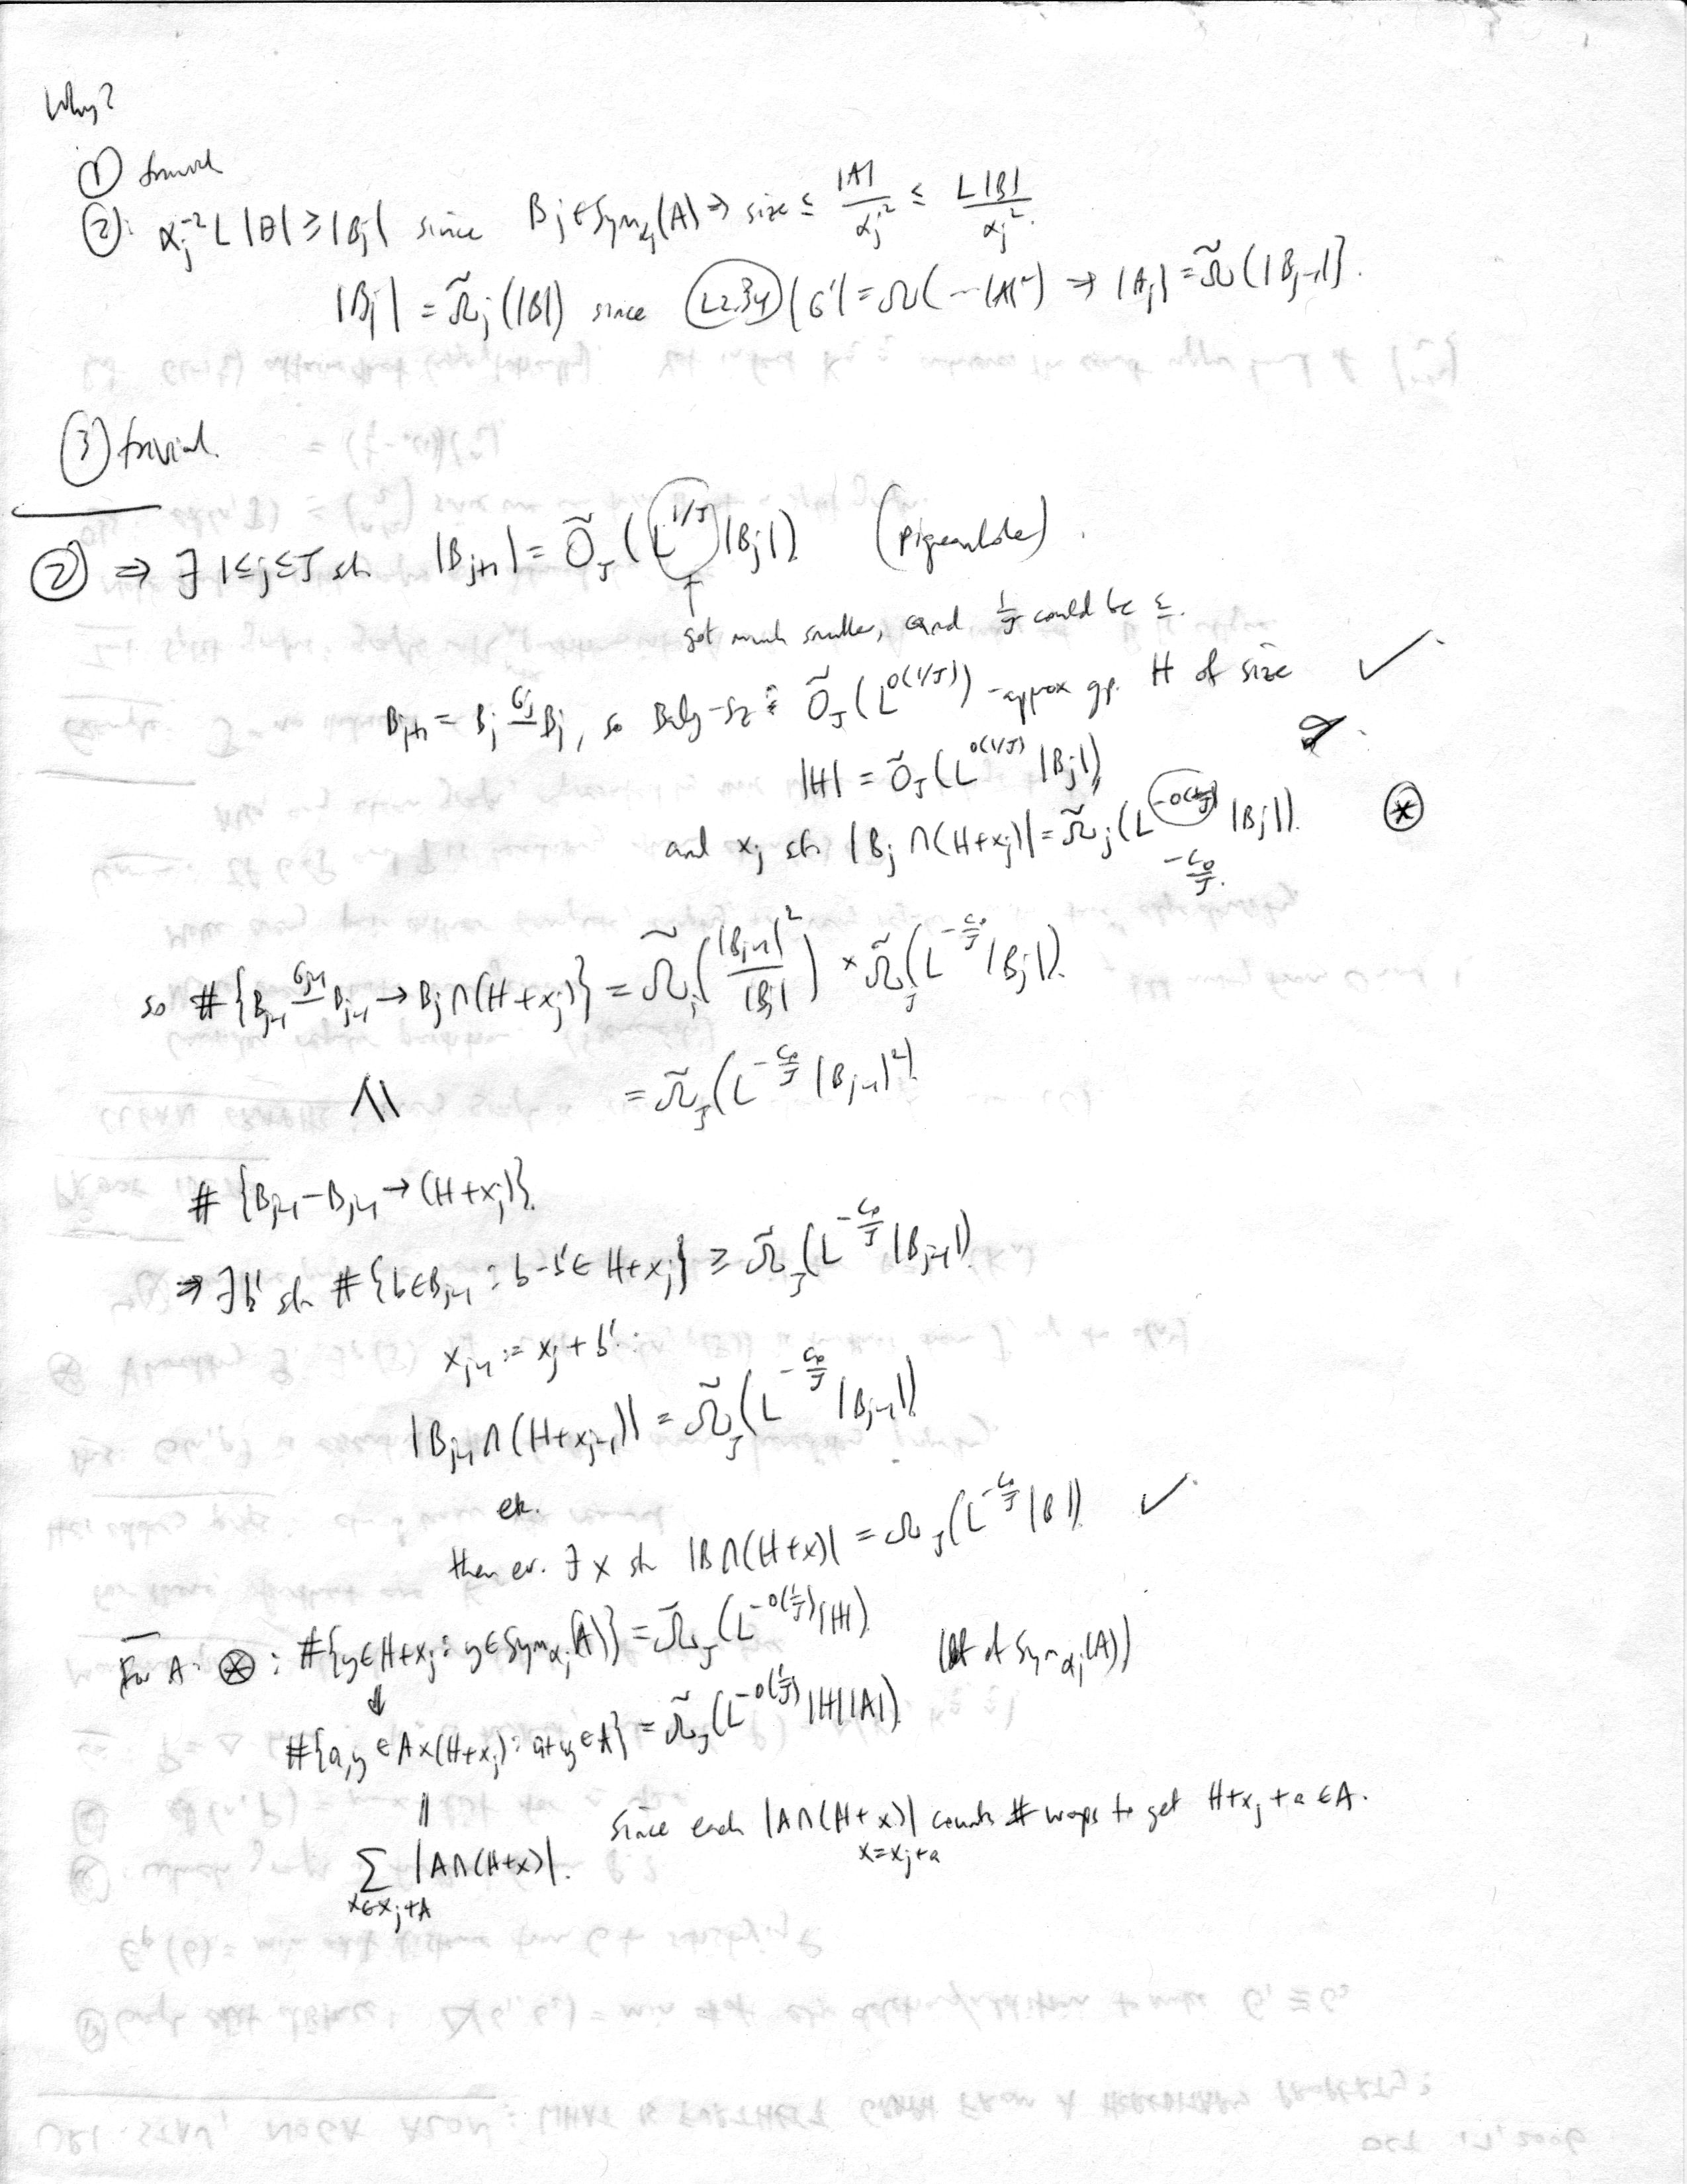 Why?
① trivial
②: α_j^{-2} L |B| ≥ |B_j| since B_j ∈ Sym_{α_j}(A) ⇒ size ≤ |A|/α_j^2 ≤ L|B|/α_j^2.
|B_j| = Ω̃_j(|B|) since (L2.34) |G'| = Ω(--|A|^2) ⇒ |A_j| = Ω̃(|B_{j-1}|).
③ trivial.
② ⇒ ∃ 1≤j≤J st |B_{j+1}| = Õ_J(L^{1/J} |B_j|). (pigeonhole).
↑
got much smaller, and 1/J could be ε.
B_{j+1} = B_j -^{G_j} B_j, so Balog-Sz: ∃ Õ_J(L^{O(1/J)})-approx gp. H of size ✓
|H| = Õ_J(L^{O(1/J)} |B_j|)
and x_j st |B_j ∩ (H+x_j)| = Ω̃_j(L^{-O(1/J)} |B_j|). ⊛
-C_0/J.
so #{B_{j-1} -^{G_{j-1}} B_{j-1} → B_j ∩ (H+x_j)} = Ω̃_j(|B_{j-1}|^2/|B_j|) × Ω̃_J(L^{-C_0/J} |B_j|).
∧| = Ω̃_J(L^{-C_0/J} |B_{j-1}|^2)
#{B_{j-1} - B_{j-1} → (H+x_j)}.
⇒ ∃ b' st #{b∈B_{j-1} : b-b' ∈ H+x_j} ≥ Ω̃_J(L^{-C_0/J} |B_{j-1}|)
x_{j-1} := x_j + b' :
|B_{j-1} ∩ (H+x_{j-1})| = Ω̃_J(L^{-C_0/J} |B_{j-1}|)
etc.
then ev. ∃ x st |B ∩ (H+x)| = Ω_J(L^{-C_0/J} |B|) ✓
For A: ⊛ : #{y∈H+x_j : y∈Sym_{α_j}(A)} = Ω̃_J(L^{-O(1/J)} |H|) (def of Sym_{α_j}(A))
⇓
#{a,y ∈ A×(H+x_j) : a+y ∈ A} = Ω̃_J(L^{-O(1/J)} |H||A|)
||
Σ_{x∈x_j+A} |A∩(H+x)|. since each |A∩(H+x)| counts # ways to get H+x_j+a ∈ A.
x=x_j+a